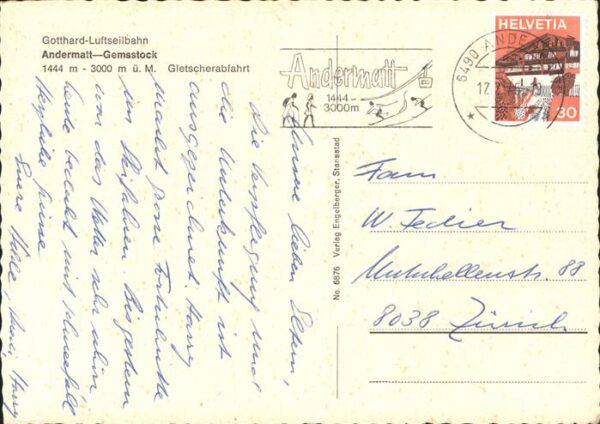 Gotthard-Luftseilbahn
Andermatt—Gemsstock
1444 m - 3000 m ü. M. Gletscherabfahrt
Andermatt
1444 -
3000m
6490 ANDE
HELVETIA
30
No. 6876 Verlag Engelberger, Stansstad
lieben Eltern,
Die Verpflegung und
die Unterkunft ist
ausgezeichnet. Harry
macht grosse Fortschritte
im Skifahren. Bis gestern
war das Wetter sehr schön
heute bedeckt mit Schneefall
Herzliche Grüsse
Eure Harry
Fam.
W. Fedier
88
8038 Zürich